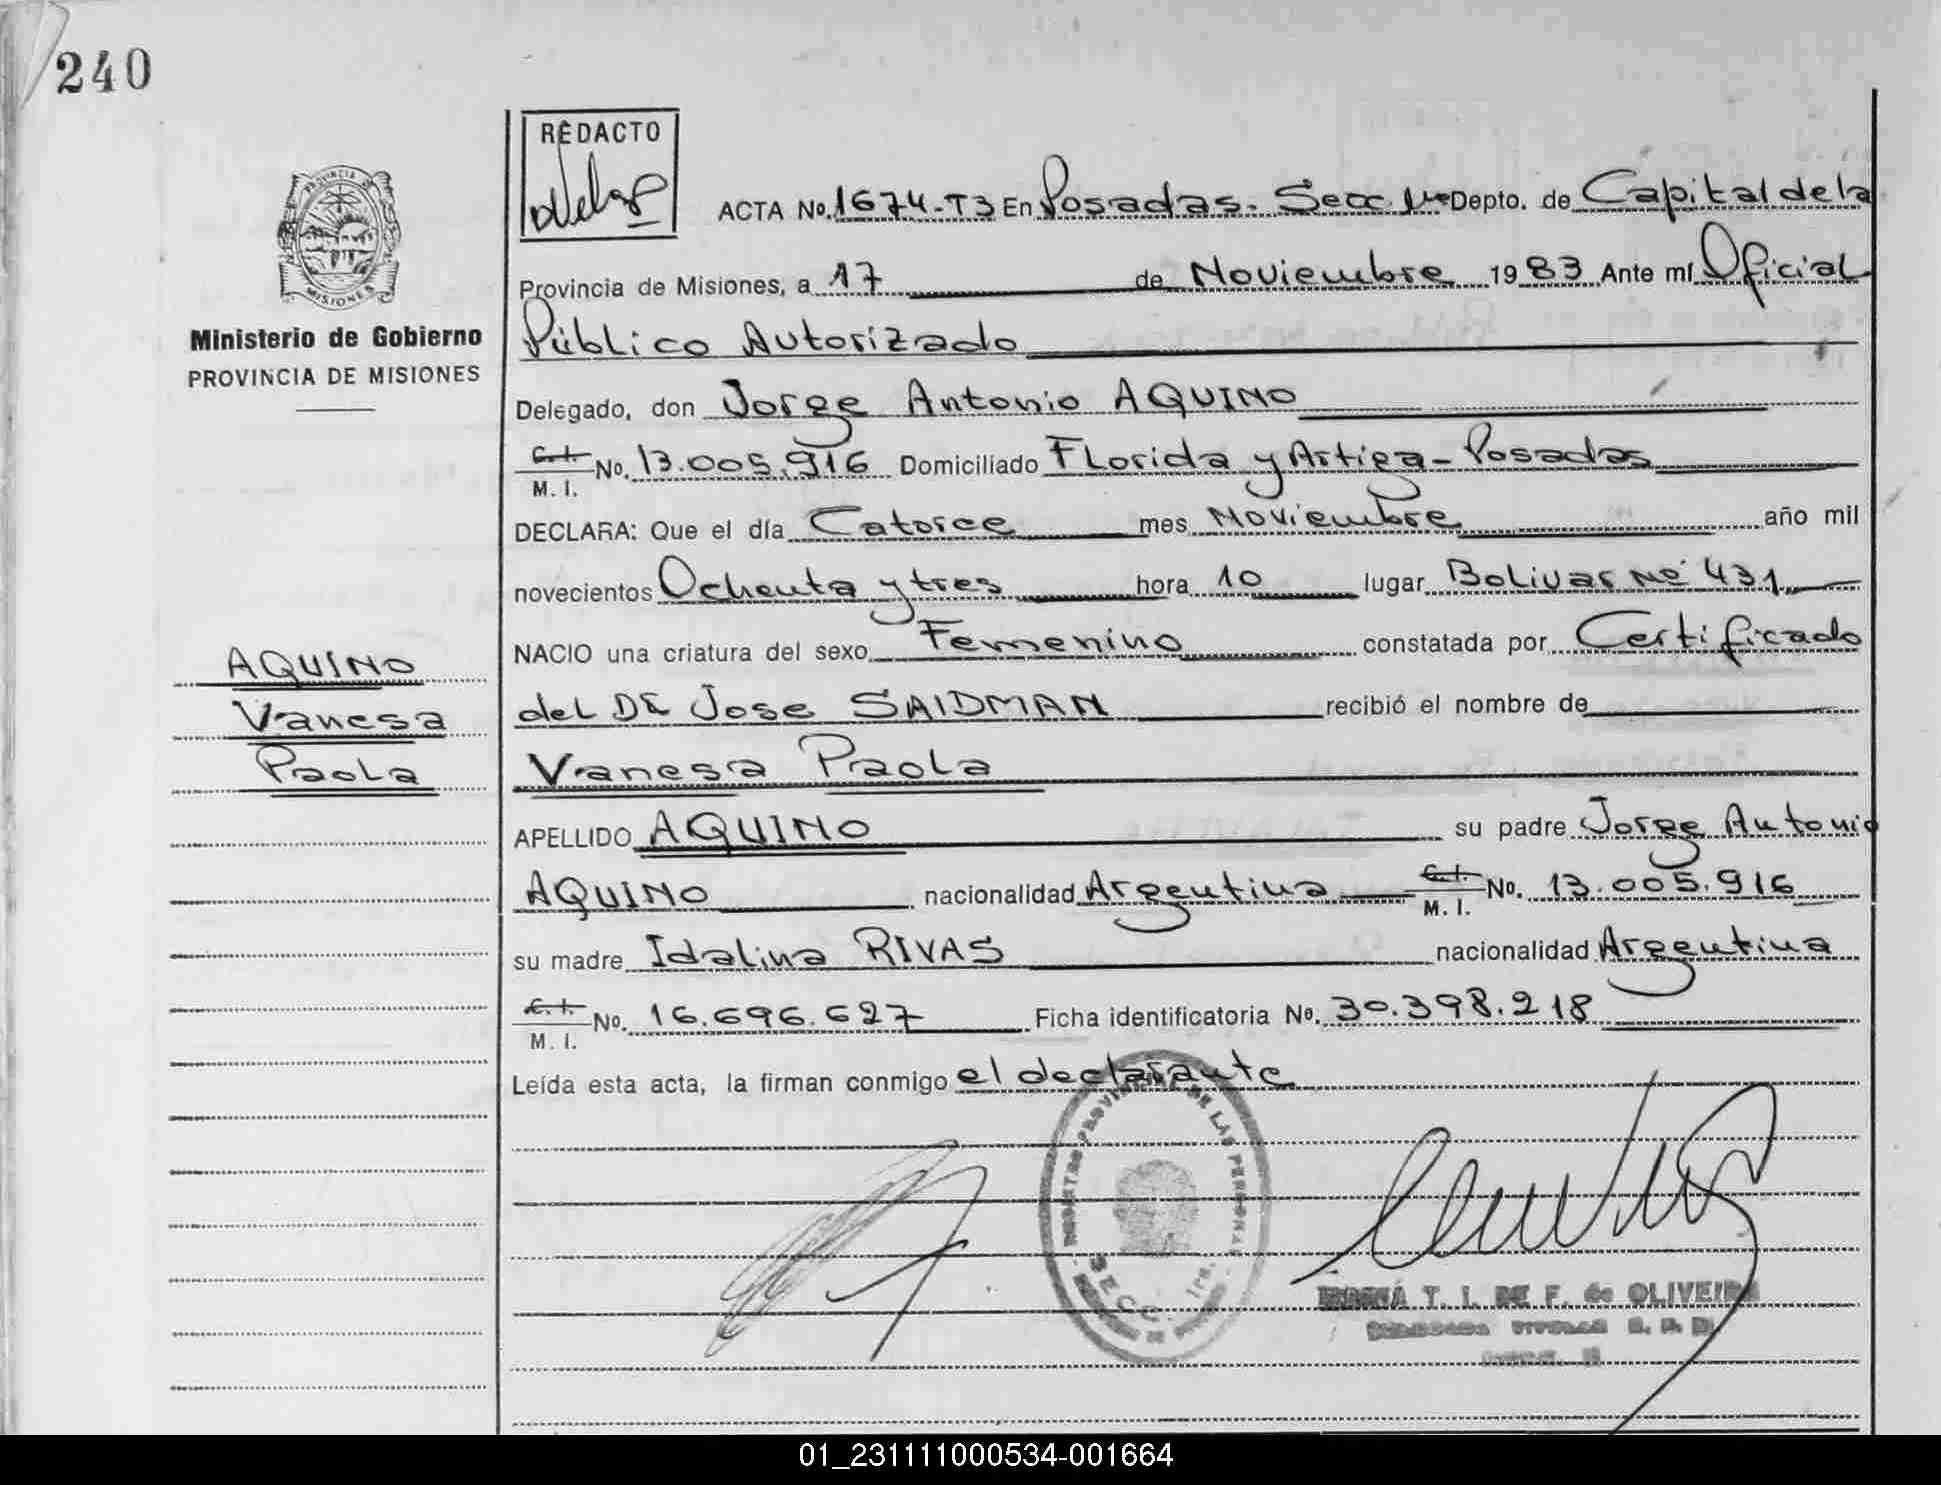 240
REDACTO
ACTA No. 1674-T3 En Posadas. Secc 1ra Depto. de Capital de la
Provincia de Misiones, a 17 de Noviembre 1983 Ante mí Oficial
Público Autorizado
Delegado, don Jorge Antonio AQUINO
C.I. M. I. No. 13.005.916 Domiciliado Florida y Artiga - Posadas
DECLARA: Que el día Catorce mes Noviembre año mil
novecientos Ochenta y tres hora 10 lugar Bolivar Nº 431
NACIO una criatura del sexo Femenino constatada por Certificado
del DR Jose SAIDMAN recibió el nombre de
Vanesa Paola
APELLIDO AQUINO su padre Jorge Antonio
AQUINO nacionalidad Argentina C.I. M. I. No. 13.005.916
su madre Idalina RIVAS nacionalidad Argentina
C.I. M. I. No. 16.696.627 Ficha identificatoria No. 30.398.218
Leída esta acta, la firman conmigo el declarante
PROVINCIA DE
MISIONES
Ministerio de Gobierno
PROVINCIA DE MISIONES
AQUINO
Vanesa
Paola
REGISTRO PROVINCIAL DE LAS PERSONAS
SECC. 1ra.
T. I. DE F. de OLIVEIRA
01_231111000534-001664